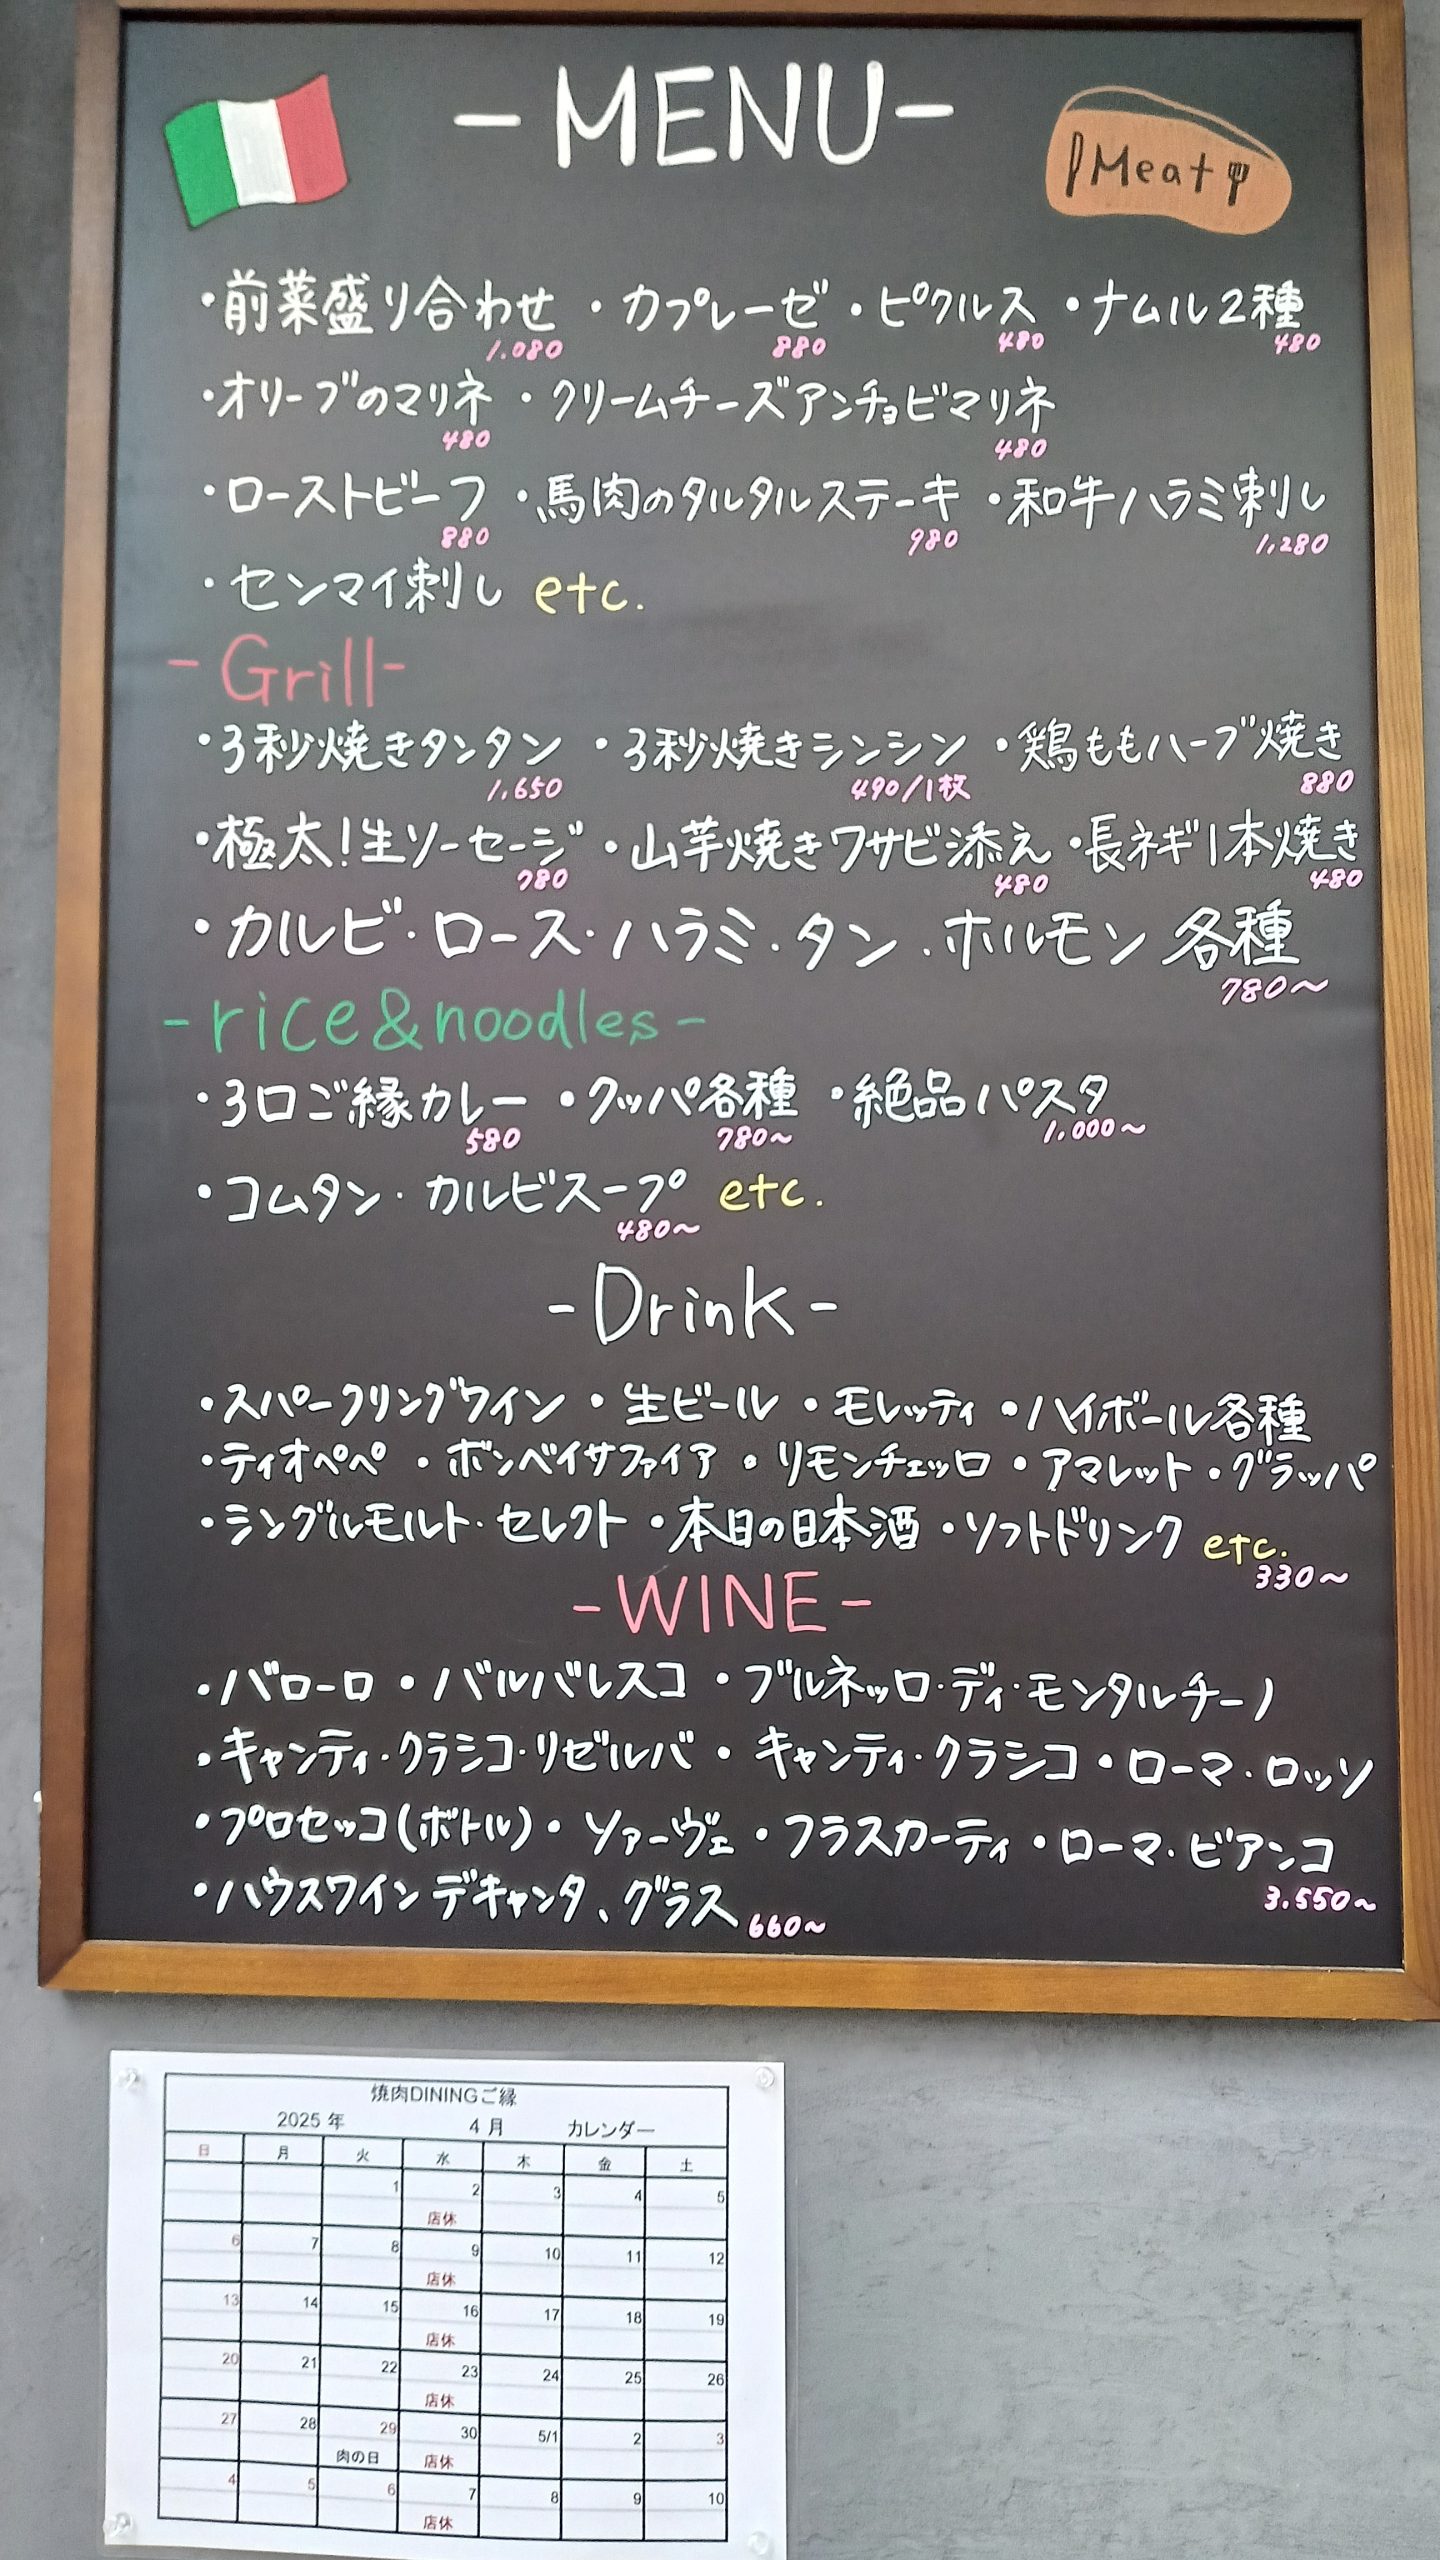 -MENU-
Meat
・前菜盛り合わせ ・カプレーゼ ・ピクルス ・ナムル2種
1.080 880 480 480
・オリーブのマリネ ・クリームチーズアンチョビマリネ
480 480
・ローストビーフ ・馬肉のタルタルステーキ ・和牛ハラミ刺し
880 980 1,280
・センマイ刺し etc.
-Grill-
・3秒焼きタンタン ・3秒焼きシンシン ・鶏ももハーブ焼き
1,650 490/1枚 880
・極太!生ソーセージ ・山芋焼きワサビ添え ・長ネギ1本焼き
780 480 480
・カルビ・ロース・ハラミ・タン・ホルモン 各種
780〜
-rice&noodles-
・3口ご縁カレー ・クッパ各種 ・絶品パスタ
580 780〜 1.000〜
・コムタン・カルビスープ etc.
480〜
-Drink-
・スパークリングワイン ・生ビール ・モレッティ ・ハイボール各種
・ティオペペ ・ボンベイサファイア ・リモンチェッロ ・アマレット ・グラッパ
・シングルモルト・セレクト ・本日の日本酒 ・ソフトドリンク etc.
330〜
-WINE-
・バローロ ・バルバレスコ ・ブルネッロ・ディ・モンタルチーノ
・キャンティ・クラシコ・リゼルバ ・キャンティ・クラシコ ・ローマ・ロッソ
・プロセッコ(ボトル) ・ソァーヴェ ・フラスカーティ ・ローマ・ビアンコ
3.550〜
・ハウスワイン デキャンタ、グラス
660〜
焼肉DININGご縁
2025 年 4 月 カレンダー
日 月 火 水 木 金 土
1 2 3 4 5
店休
6 7 8 9 10 11 12
店休
13 14 15 16 17 18 19
店休
20 21 22 23 24 25 26
店休
27 28 29 30 5/1 2 3
肉の日 店休
4 5 6 7 8 9 10
店休